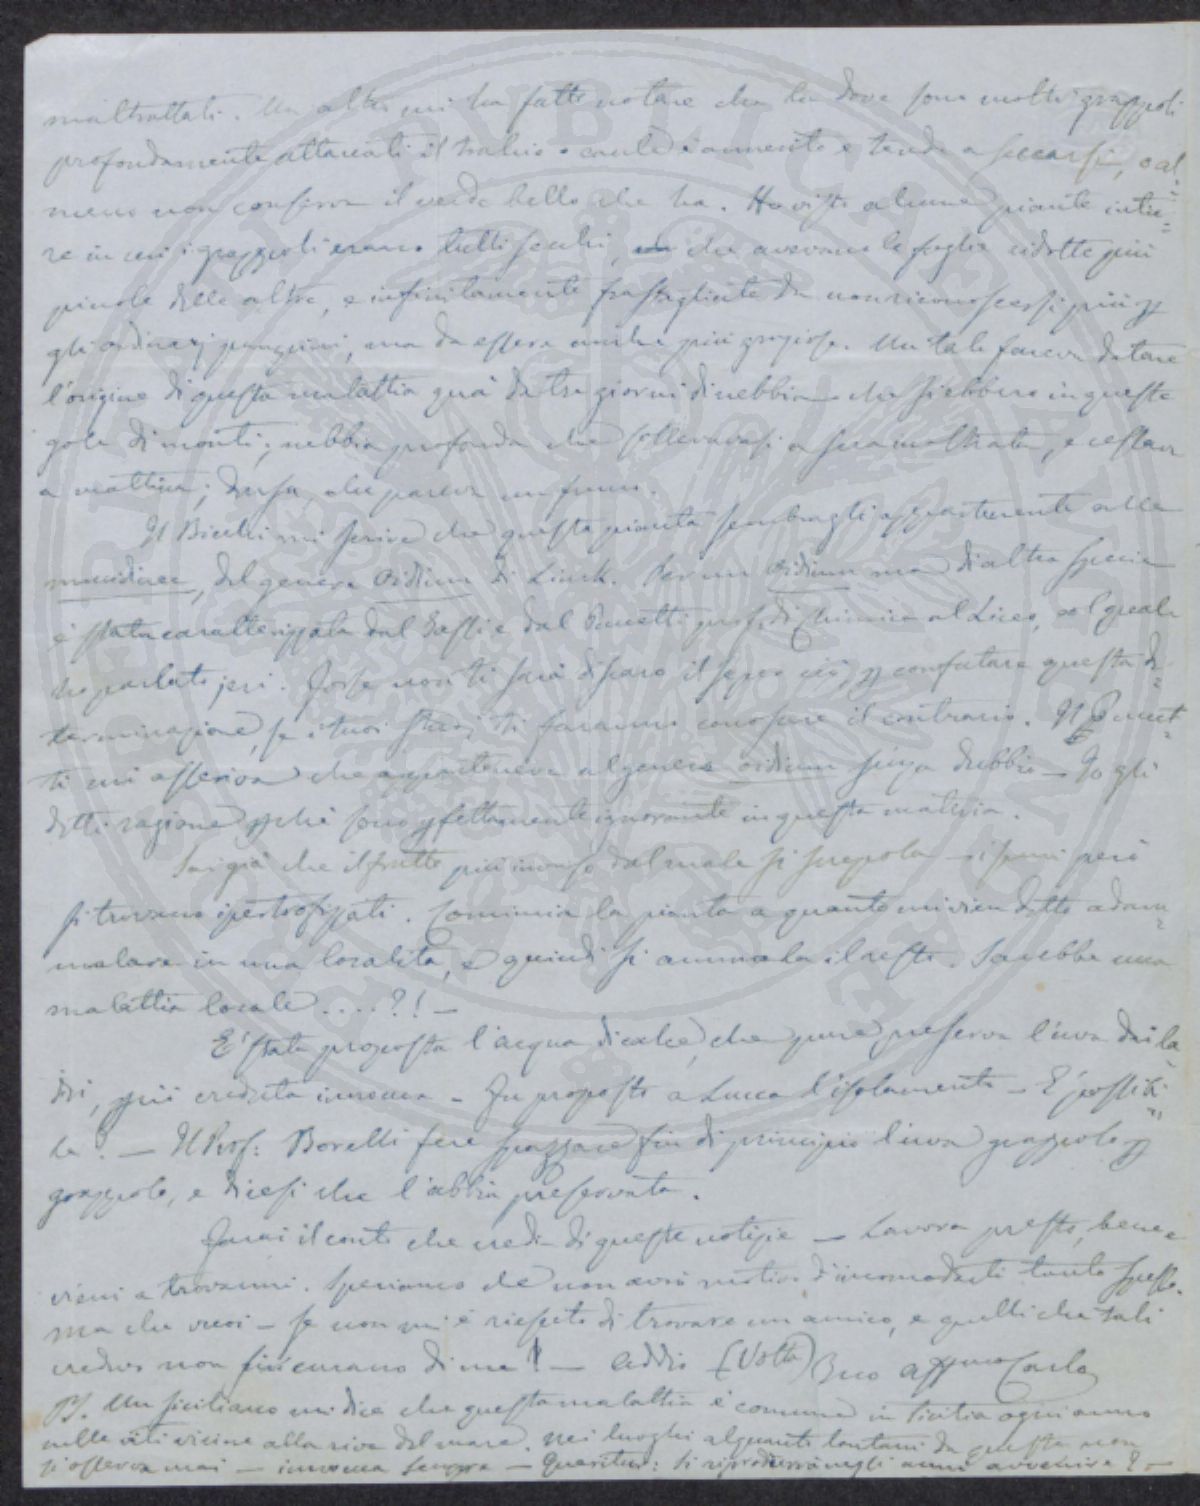 maltrattati. Un altro mi ha fatto notare che la dove sono molti grappoli
profondamente attaccati il tralcio o caule è annerito e tende a seccarsi, o al=
meno non conserva il verde bello che ha. Ho visto alcune piante intie=
re in cui i grappoli erano tutti secchi, che avevano le foglie ridotte più
piccole delle altre, e infinitamente frastagliate da non riconoscersi più per
gli ordinarj pampini, ma da essere anche più graziose. Un tale faceva datare
l'origine di questa malattia quà da tre giorni di nebbia che si ebbero in queste
gole di monti; nebbia profonda che sollevavasi a sera inoltrata, e restava
a mattina; densa, che pareva un fumo.
Il Bicchi mi scrive che questa pianta sembragli appartenente alle
mucidinee, del genere Oidium di Link. Per un Oidium ma di altra specie
è stata caratterizzata dal e dal Puccetti prof. di Chimica al Liceo, col quale
ho parlato jeri. Forse non ti sarà discaro il sapere ciò, per confutare questa de=
terminazione, se i tuoi studj ti faranno conoscere il contrario. Il Puccet=
ti mi asseriva che apparteneva al genere oidium senza dubbio — Io gli
detti ragione perchè sono perfettamente ignorante in questa materia.
Sai già che il frutto più invaso dal male si screpola — i semi però
si trovano ipertrofizzati. Comincia la pianta a quanto mi vien detto ad am=
malare in una località, e quindi si ammala il resto. Sarebbe una
malattia locale ....?! —
E' stata proposta l'acqua di calce, che pure preserva l'uva dai la=
dri, più creduta innocua — Fu proposto a Lucca l'isolamento — E' possibi=
le? — Il Prof: Borelli fece spazzare fin di principio l'uva grappolo per
grappolo, e dicesi che l'abbia preservata.
Farai il conto che credi di queste notizie — Lavora presto, bene e
vieni a trovarmi. Speriamo che non avrò motivo d'incomodarti tanto spesso.
ma che vuoi — se non mi è riescito di trovare un amico, e quelli che tali
credevo non si curano di me! — Addio (Volta) Tuo Affmo Carlo
PS. Un siciliano mi dice che questa malattia è comune in Sicilia ogni anno
nelle viti vicine alla riva del mare. Nei luoghi alquanto lontani da questa non
si osserva mai — innocua sempre — Queritur: Si riprodurrà negli anni avvenire? —